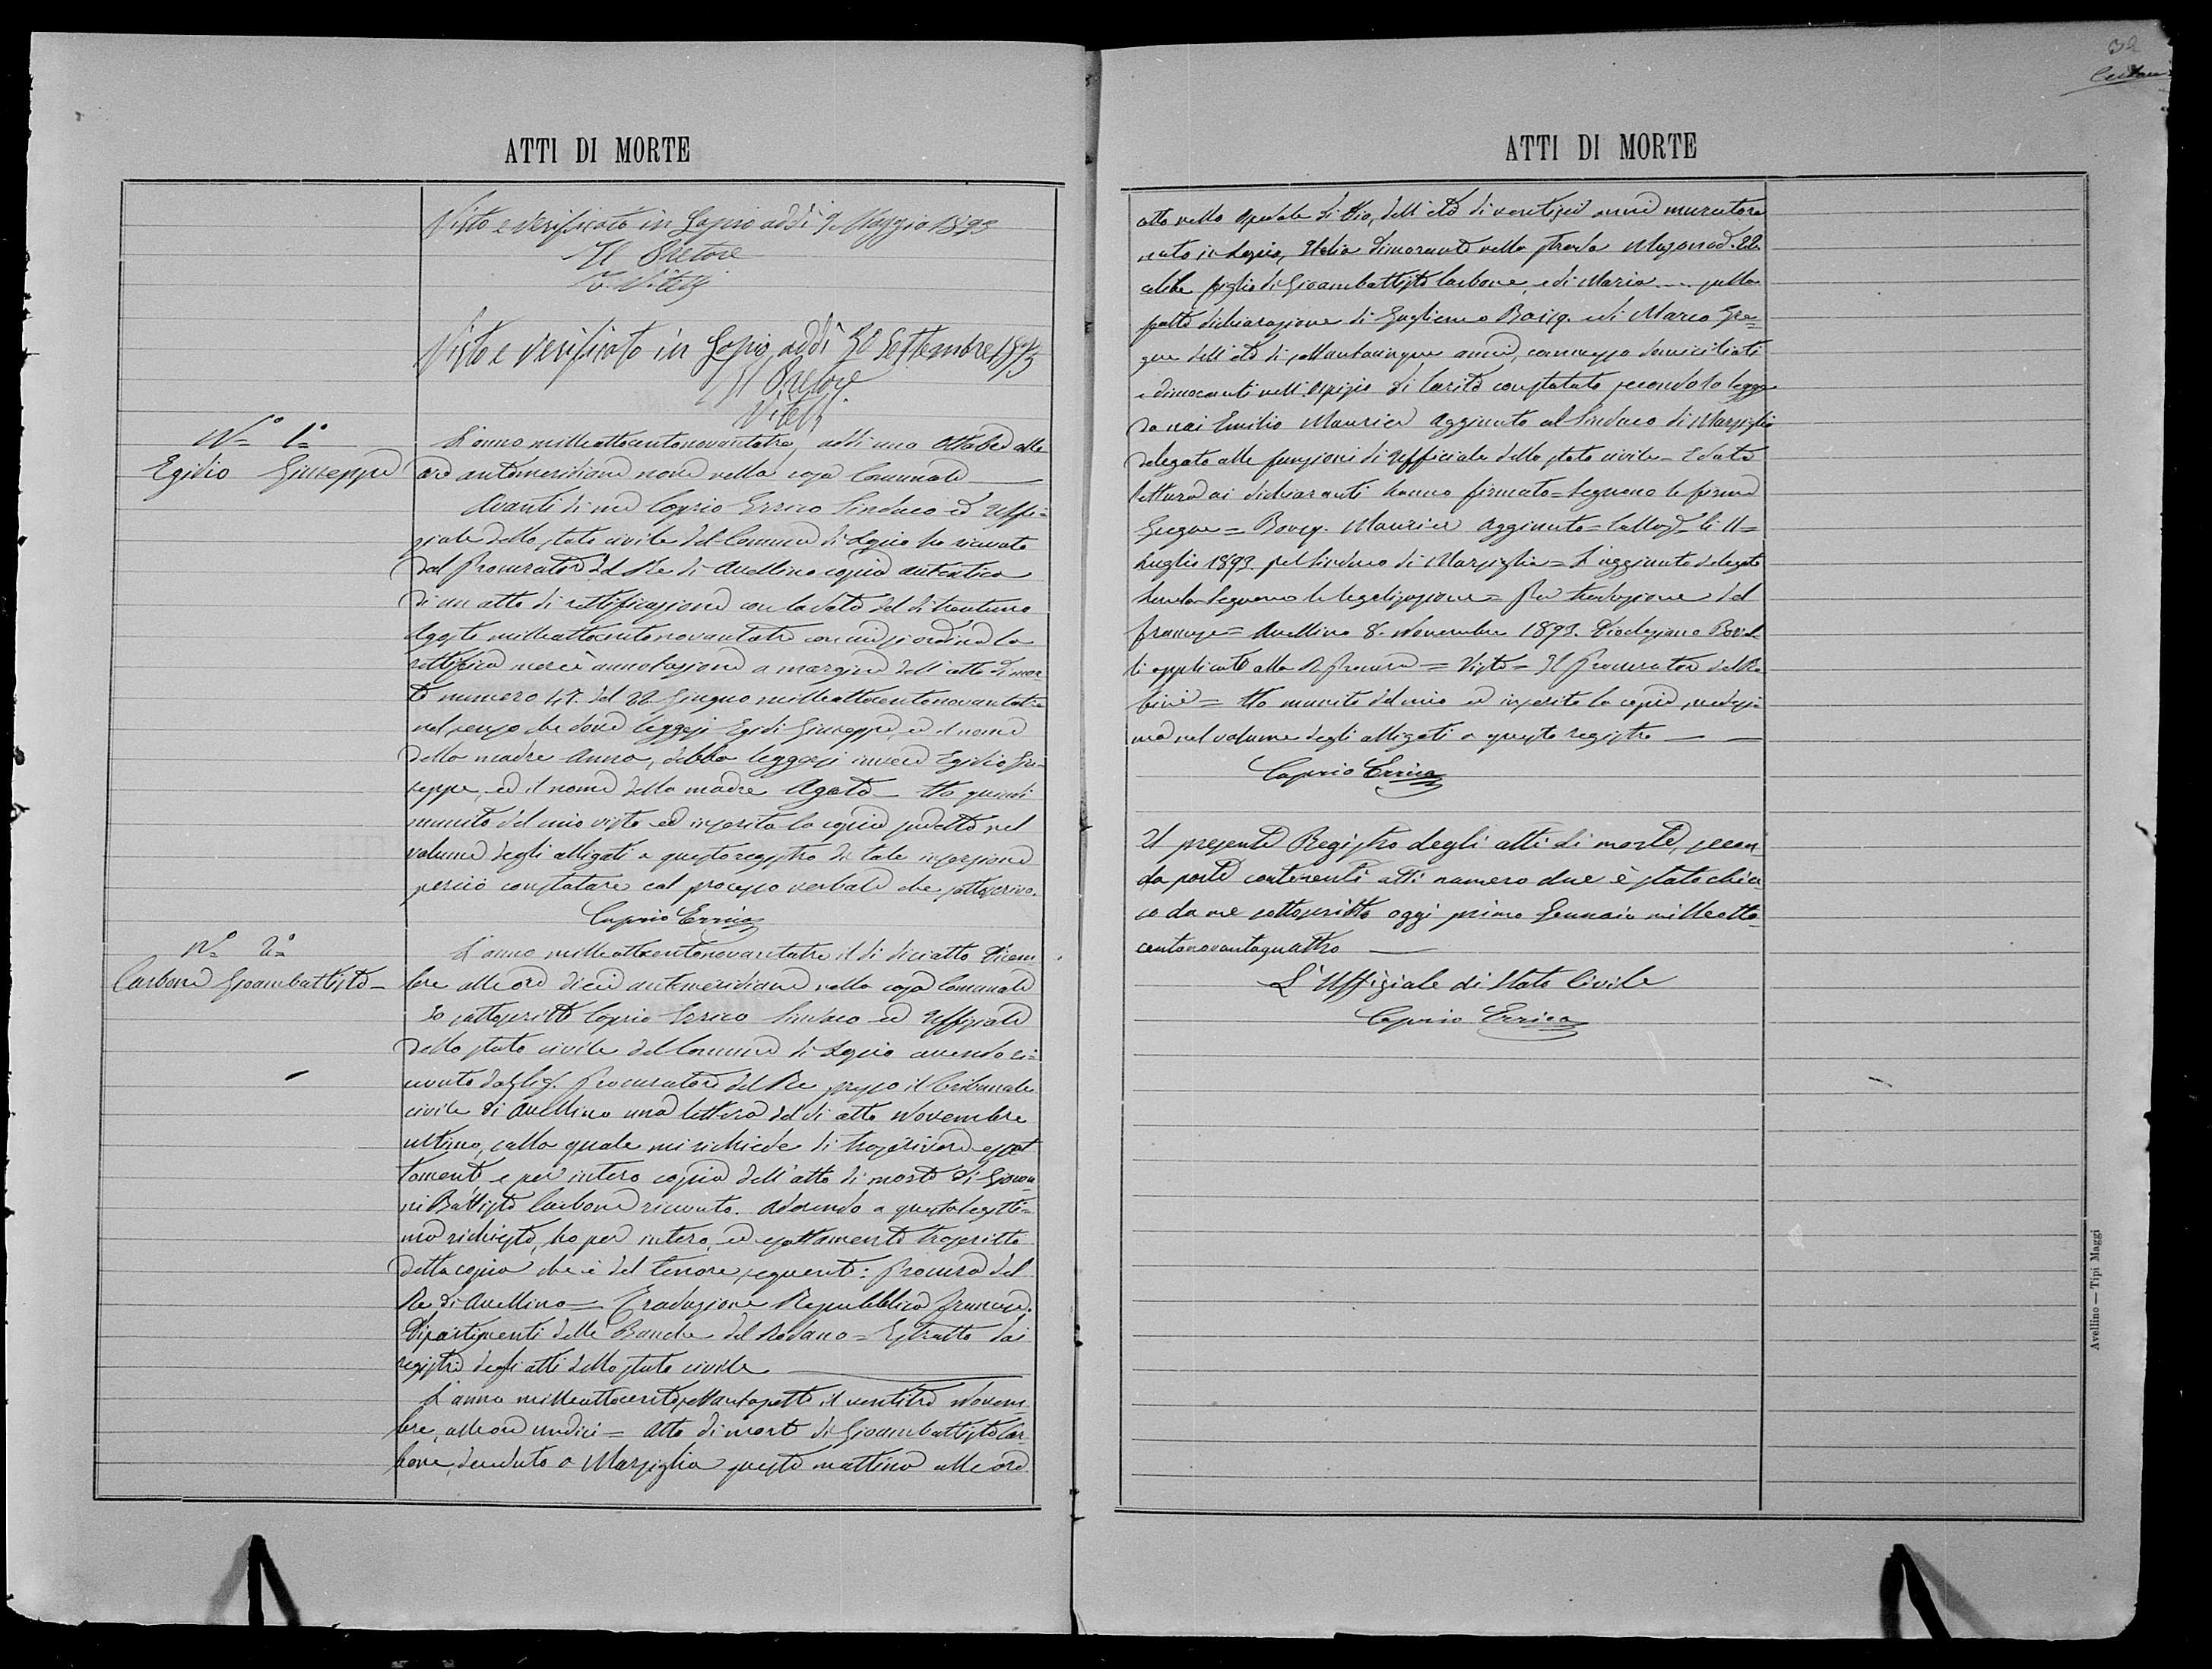 32
ATTI DI MORTE
Visto e verificato in Lapio addì 9 Maggio 1893
Il Pretore
Vitelli
Visto e verificato in Lapio, addì 30 Settembre 1893
Il Pretore
Vitelli
N.° 1.°
Egidio Giuseppe
L'anno milleottocentonovantatre, addì uno Ottobre alle
ore antimeridiane nove nella casa Comunale
Avanti di me Caprio Errico Sindaco ed Uffi=
ziale dello stato civile del Comune di Lapio ho ricevuto
dal Procuratore del Re di Avellino copia autentica
di un atto di rettificazione con la data del dì trentuno
Agosto milleottocentonovantatre con cui si ordina la
rettifica mercè annotazione a margine dell'atto di mor=
te numero 47. del 22. Giugno milleottocentonovantatre
nel senso che dove leggesi Egidi Giuseppe ed il nome
della madre Anna, debba leggersi invece Egidio Giu=
seppe, ed il nome della madre Agata — Ho quindi
munito del mio visto ed inserita la copia predetta nel
volume degli alligati a questo registro di tale inserzione
perciò constatare col processo verbale che sottoscrivo.
Caprio Errico
N.° 2.°
Carbone Gioambattista —
L'anno milleottocentonovantatre il dì diciotto Dicem
bre alle ore dieci antimeridiane nella casa Comunale
Io sottoscritto Caprio Errico Sindaco ed Uffiziale
dello stato civile del Comune di Lapio avendo ri=
cevuto Procuratore del Re presso il Tribunale
civile di Avellino una lettera del dì otto Novembre
ultimo, colla quale mi richiede di trascrivere esat
tamente e per intero copia dell'atto di morte di Giovan
ni Battista Carbone ricevuto. Aderendo a questa legitti=
ma richiesta, ho per intero, ed esattamente trascritto
detta copia che è del tenore seguente: Procura del
Re di Avellino = Traduzione Repubblica francese.
Dipartimenti delle Bouche del Rodano = Estratto dai
registri degli atti dello stato civile
L'anno milleottocentosettantasette il ventitre Novem=
bre, alle ore undici = Atto di morte di Gioambattista Car=
bone, deceduto a Marsiglia questo mattino alle ore
ATTI DI MORTE
otto nello Spedale di Dio, dell'età di ventisei anni muratore
nato in Lapio, Italia dimorante nella strada 22.
celibe figlio di Gioambattista Carbone, e di Maria .... sulla
fatta dichiarazione di Guglielmo Bousq. e di Marco Gre=
gue dell'età di settantacinque anni, commesso domiciliati
e dimoranti nell'Ospizio di Carità constatato secondo la legge
da noi Emilio Maurier Aggiunto al Sindaco di Marsiglia
delegato alle funzioni di Ufficiale dello stato civile — E data
lettura ai dichiaranti hanno firmato = Seguono le firme
Gregue = Bousq. Maurier Aggiunto = li 11 =
Luglio 1893. pel Sindaco di Marsiglia = L'aggiunto delegato
Seguono le legalizzazione = Per traduzione dal
francese = Avellino 8. Novembre 1893. Diocleziano
applicato alla R. Procura = Visto = Il Procuratore del Re
= Ho munito del mio ed inserita la copia medesi=
ma nel volume degli alligati a questo registro — —
Caprio Errico
Il presente Registro degli atti di morte, secon
da parte contenente atti numero due è stato chiu
so da me sottoscritto oggi primo Gennaio milleotto
centonovantaquattro —
L'Uffiziale di Stato Civile
Caprio Errico
Avellino — Tipi Maggi